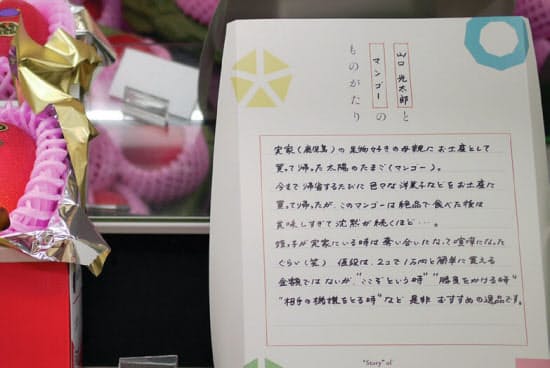 山口 光太郎 と
マンゴー の
ものがたり
実家(鹿児島)の果物好きの母親にお土産として
買って帰った太陽のたまご(マンゴー)。
今まで帰省するたびに色々な洋菓子などをお土産に
買って帰ったが、このマンゴーは絶品で食べた後は
美味しすぎて沈黙が続くほど…。
姪っ子が実家にいる時は奪い合いになって喧嘩になった
ぐらい(笑) 値段は、2コで1万円と簡単に買える
金額ではないが、"ここぞという時""勝負をかける時"
"相手の機嫌をとる時"など 是非 おすすめの逸品です。
"Story" of